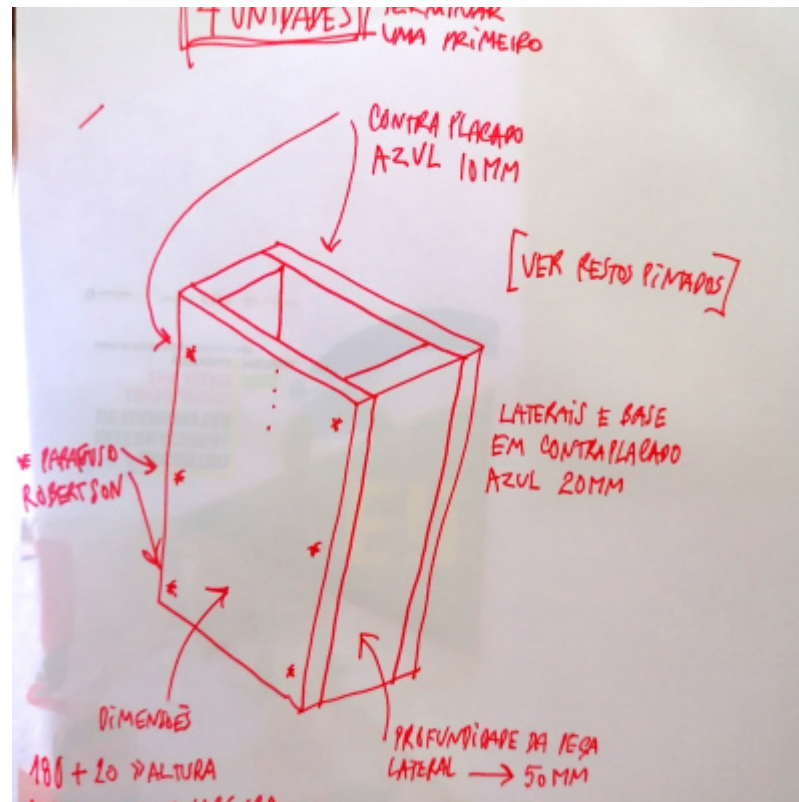 4 UNIDADES
TERMINAR
UMA PRIMEIRO
CONTRAPLACADO
AZUL 10MM
[VER RESTOS PINTADOS]
LATERAIS E BASE
EM CONTRAPLACADO
AZUL 20MM
* PARAFUSO
ROBERTSON
DIMENSÕES
180 + 20 » ALTURA
PROFUNDIDADE DA PEÇA
LATERAL → 50MM